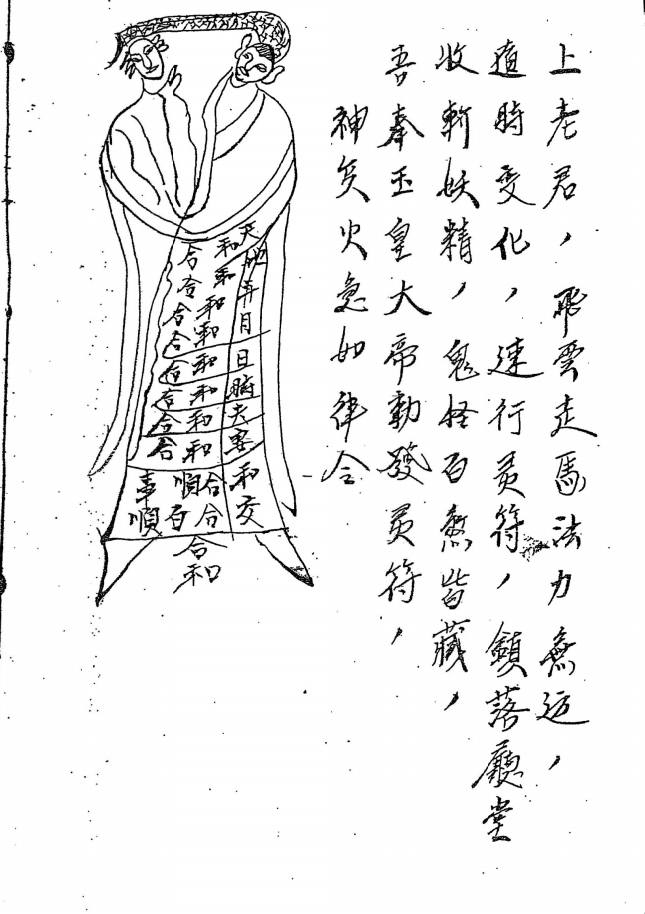 上老君，飛雲走馬法力無边，
適時变化，速行灵符，鎮落廳堂
收斬妖精，鬼怪百煞皆藏，
吾奉玉皇大帝勅發灵符，
神兵火急如律令
天地年月日時夫妻和交
和和和和和和和和合合
合合合合合合合合順百
事順
合和